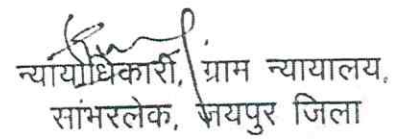 न्यायाधिकारी, ग्राम न्यायालय,
सांभरलेक, जयपुर जिला